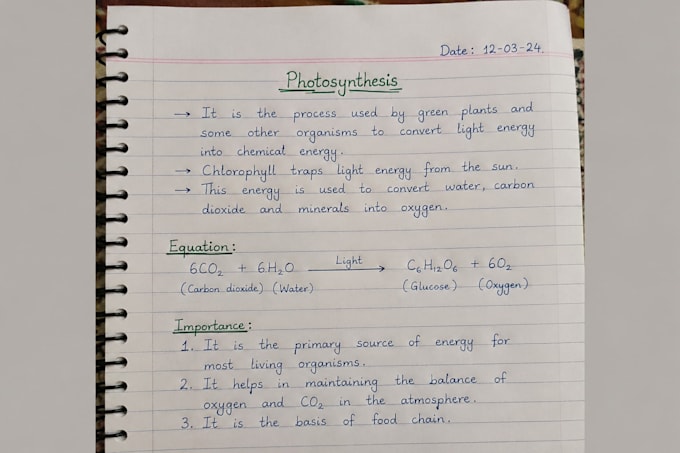 Date: 12-03-24.
Photosynthesis
→ It is the process used by green plants and
some other organisms to convert light energy
into chemical energy.
→ Chlorophyll traps light energy from the sun.
→ This energy is used to convert water, carbon
dioxide and minerals into oxygen.
Equation:
6CO₂ + 6H₂O —Light→ C₆H₁₂O₆ + 6O₂
(Carbon dioxide) (Water) (Glucose) (Oxygen)
Importance:
1. It is the primary source of energy for
most living organisms.
2. It helps in maintaining the balance of
oxygen and CO₂ in the atmosphere.
3. It is the basis of food chain.